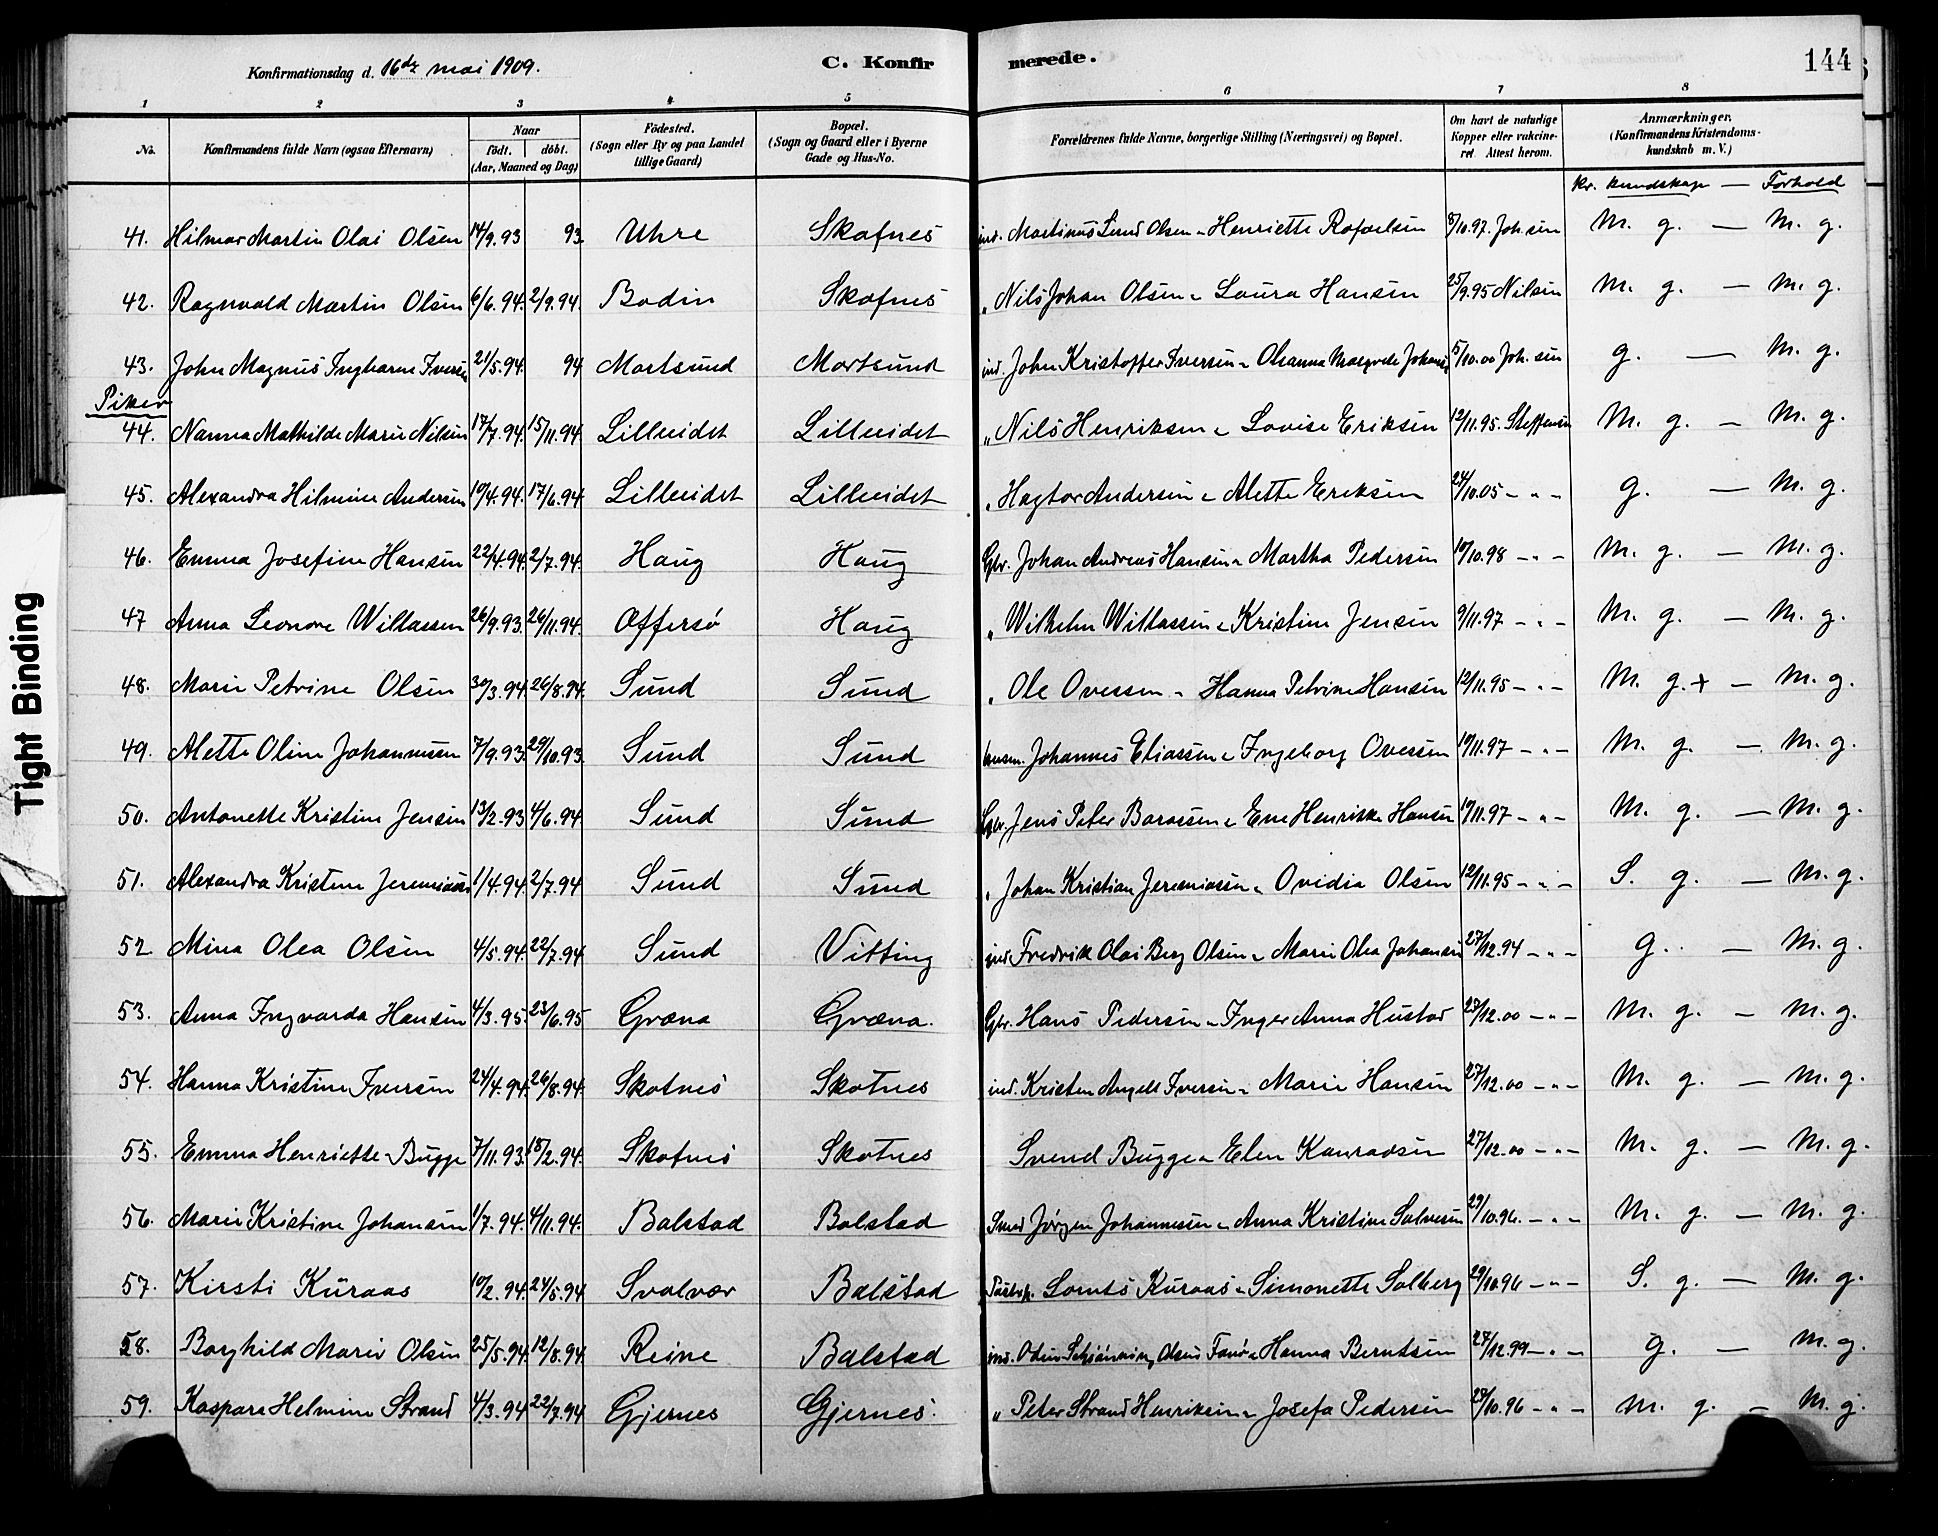 Konfirmationsdag d. 16de mai 1909.
C. Konfirmerede.
144
1 2 3 4 5 6 7 8
No. Konfirmandens fulde Navn (ogsaa Efternavn) Naar födt. döbt. (Aar, Maaned og Dag) Födested. (Sogn eller By og paa Landet tillige Gaard) Bopæl. (Sogn og Gaard eller i Byerne Gade og Hus-No. Forældrenes fulde Navne, borgerlige Stilling (Næringsvei) og Bopæl. Om havt de naturlige Kopper eller vakcineret Attest herom. Anmærkninger. (Konfirmandens Kristendomskundskab m. V.)
Kr. kundskap — Forhold
41. Hilmar Martin Olai Olsen 14/9.93 93 Uhre Skotnes ind. Martinus Lund Olsen Henriette Rafaelsen 8/10.97. Joh.sen M. g. — M. g.
42. Ragnvald Martin Olsen 6/6.94. 2/9.94. Bodin Skotnes " Nils Johan Olsen Laura Hansen 25/9.95 Nilsen M. g. — M. g.
43. John Magnus Ingharm Iversen 21/5.94. 94 Mortsund Mortsund ind. John Kristoffer Iversen Ohanna 5/10.00 Joh.sen g. — M. g.
Piker
44. Nanna Mathilde Marie Nilsen 17/7.94. 15/11.94 Lilleeidet Lilleeidet " Nils Henriksen Lovise Eriksen 12/11.95. Steffensen M. g. — M. g.
45. Alexandra Hilmine Andersen 10/4.94. 17/6.94 Lilleeidet Lilleeidet " Hagtor Andersen Alette Eriksen 24/10.05 - " - g. — M. g.
46. Emma Josefine Hansen 22/4.94. 2/7.94. Haug Haug Gbr. Johan Andreas Hansen Martha Pedersen 10/10.98 - " - M. g. — M. g.
47 Anna Leonore Willassen 26/9.93. 26/11.94. Offersö Haug " Wilhelm Willassen Kristine Jensen 9/11.97 - " - M. g. — M. g.
48. Marie Petrine Olsen 30/3.94. 26/8.94. Sund Sund " Ole Ovessen Hanna Petrine Hansen 12/11.95 - " - M. g.+ — M. g.
49. Alette Oline Johannessen 7/9.93. 29/10.93. Sund Sund husm. Johannes Eliassen Ingeborg Ovessen 10/11.97 - " - M. g. — M. g.
50. Antonette Kristine Jensen 13/2.93 4/6.94. Sund Sund Gbr. Jens Peter Eve Henrikke Hansen 10/11.97 - " - M. g. — M. g.
51. Alexandra Kristine Jeremiassen 1/4.94. 2/7.94 Sund Sund " Johan Kristian Jeremiassen Ovidia Olsen 12/11.95 - " - S. g. — M. g.
52 Mina Olea Olsen 4/5.94. 22/7.94 Sund Vitting ind. Fredrik Olai Berg Olsen Marie Olea Johansen 27/12.94 - " - g. — M. g.
53. Anna Ingvarda Hansen 4/3.95. 23/6.95 Græna Græna. Gbr. Hans Pedersen Inger Anna Hustad 27/12.00 - " - M. g. — M. g.
54. Hanna Kristine Iversen 24/4.94. 26/8.94. Skotnes Skotnes ind. Kristen Angell Iversen Marie Hansen 27/12.00 - " - M. g. — M. g.
55. Emma Henriette Bugge 7/11.93. 18/2.94. Skotnes Skotnes Svend Bugge Elen Konradsen 27/12.00 - " - M. g. — M. g.
56. Marie Kristine Johansen 1/7.94. 4/11.94. Balstad Balstad Smed Jørgen Johannesen Anna Kristine Salvesen 29/10.96. - " - M. g. — M. g.
57. Kirsti Kuraas 10/2.94. 24/5.94 Svolvær Balstad Lornts Kuraas Simonette Solberg 29/10.96 - " - S. g. — M. g.
58. Borghild Marie Olsen 25/5.94. 12/8.94. Reine Balstad ind. Odin Schiønning Olsen Hanna Berntsen 27/12.99 - " - g. M. g.
59. Kaspara Helmine Strand 4/3.94 22/7.94 Gjernes Gjernes. " Peter Strand Henriksen Josefa Pedersen 29/10.96 - " - M. g. — M. g.
Tight Binding